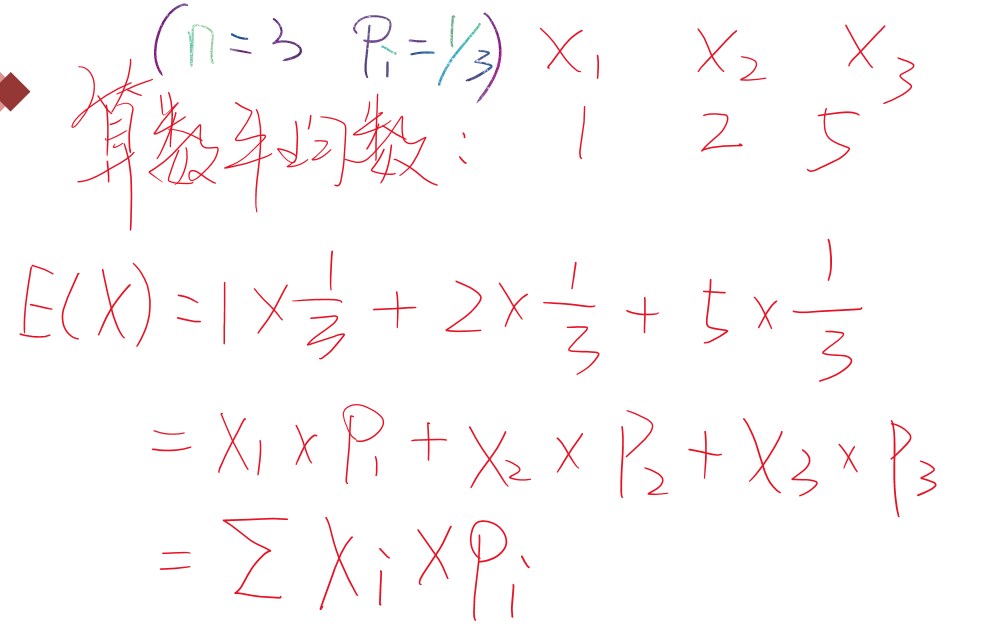 (n=3 Pi=1/3) X₁ X₂ X₃
算数平均数: 1 2 5
E(X)=1×1/3+2×1/3+5×1/3
=X₁×P₁+X₂×P₂+X₃×P₃
=∑Xi×Pi